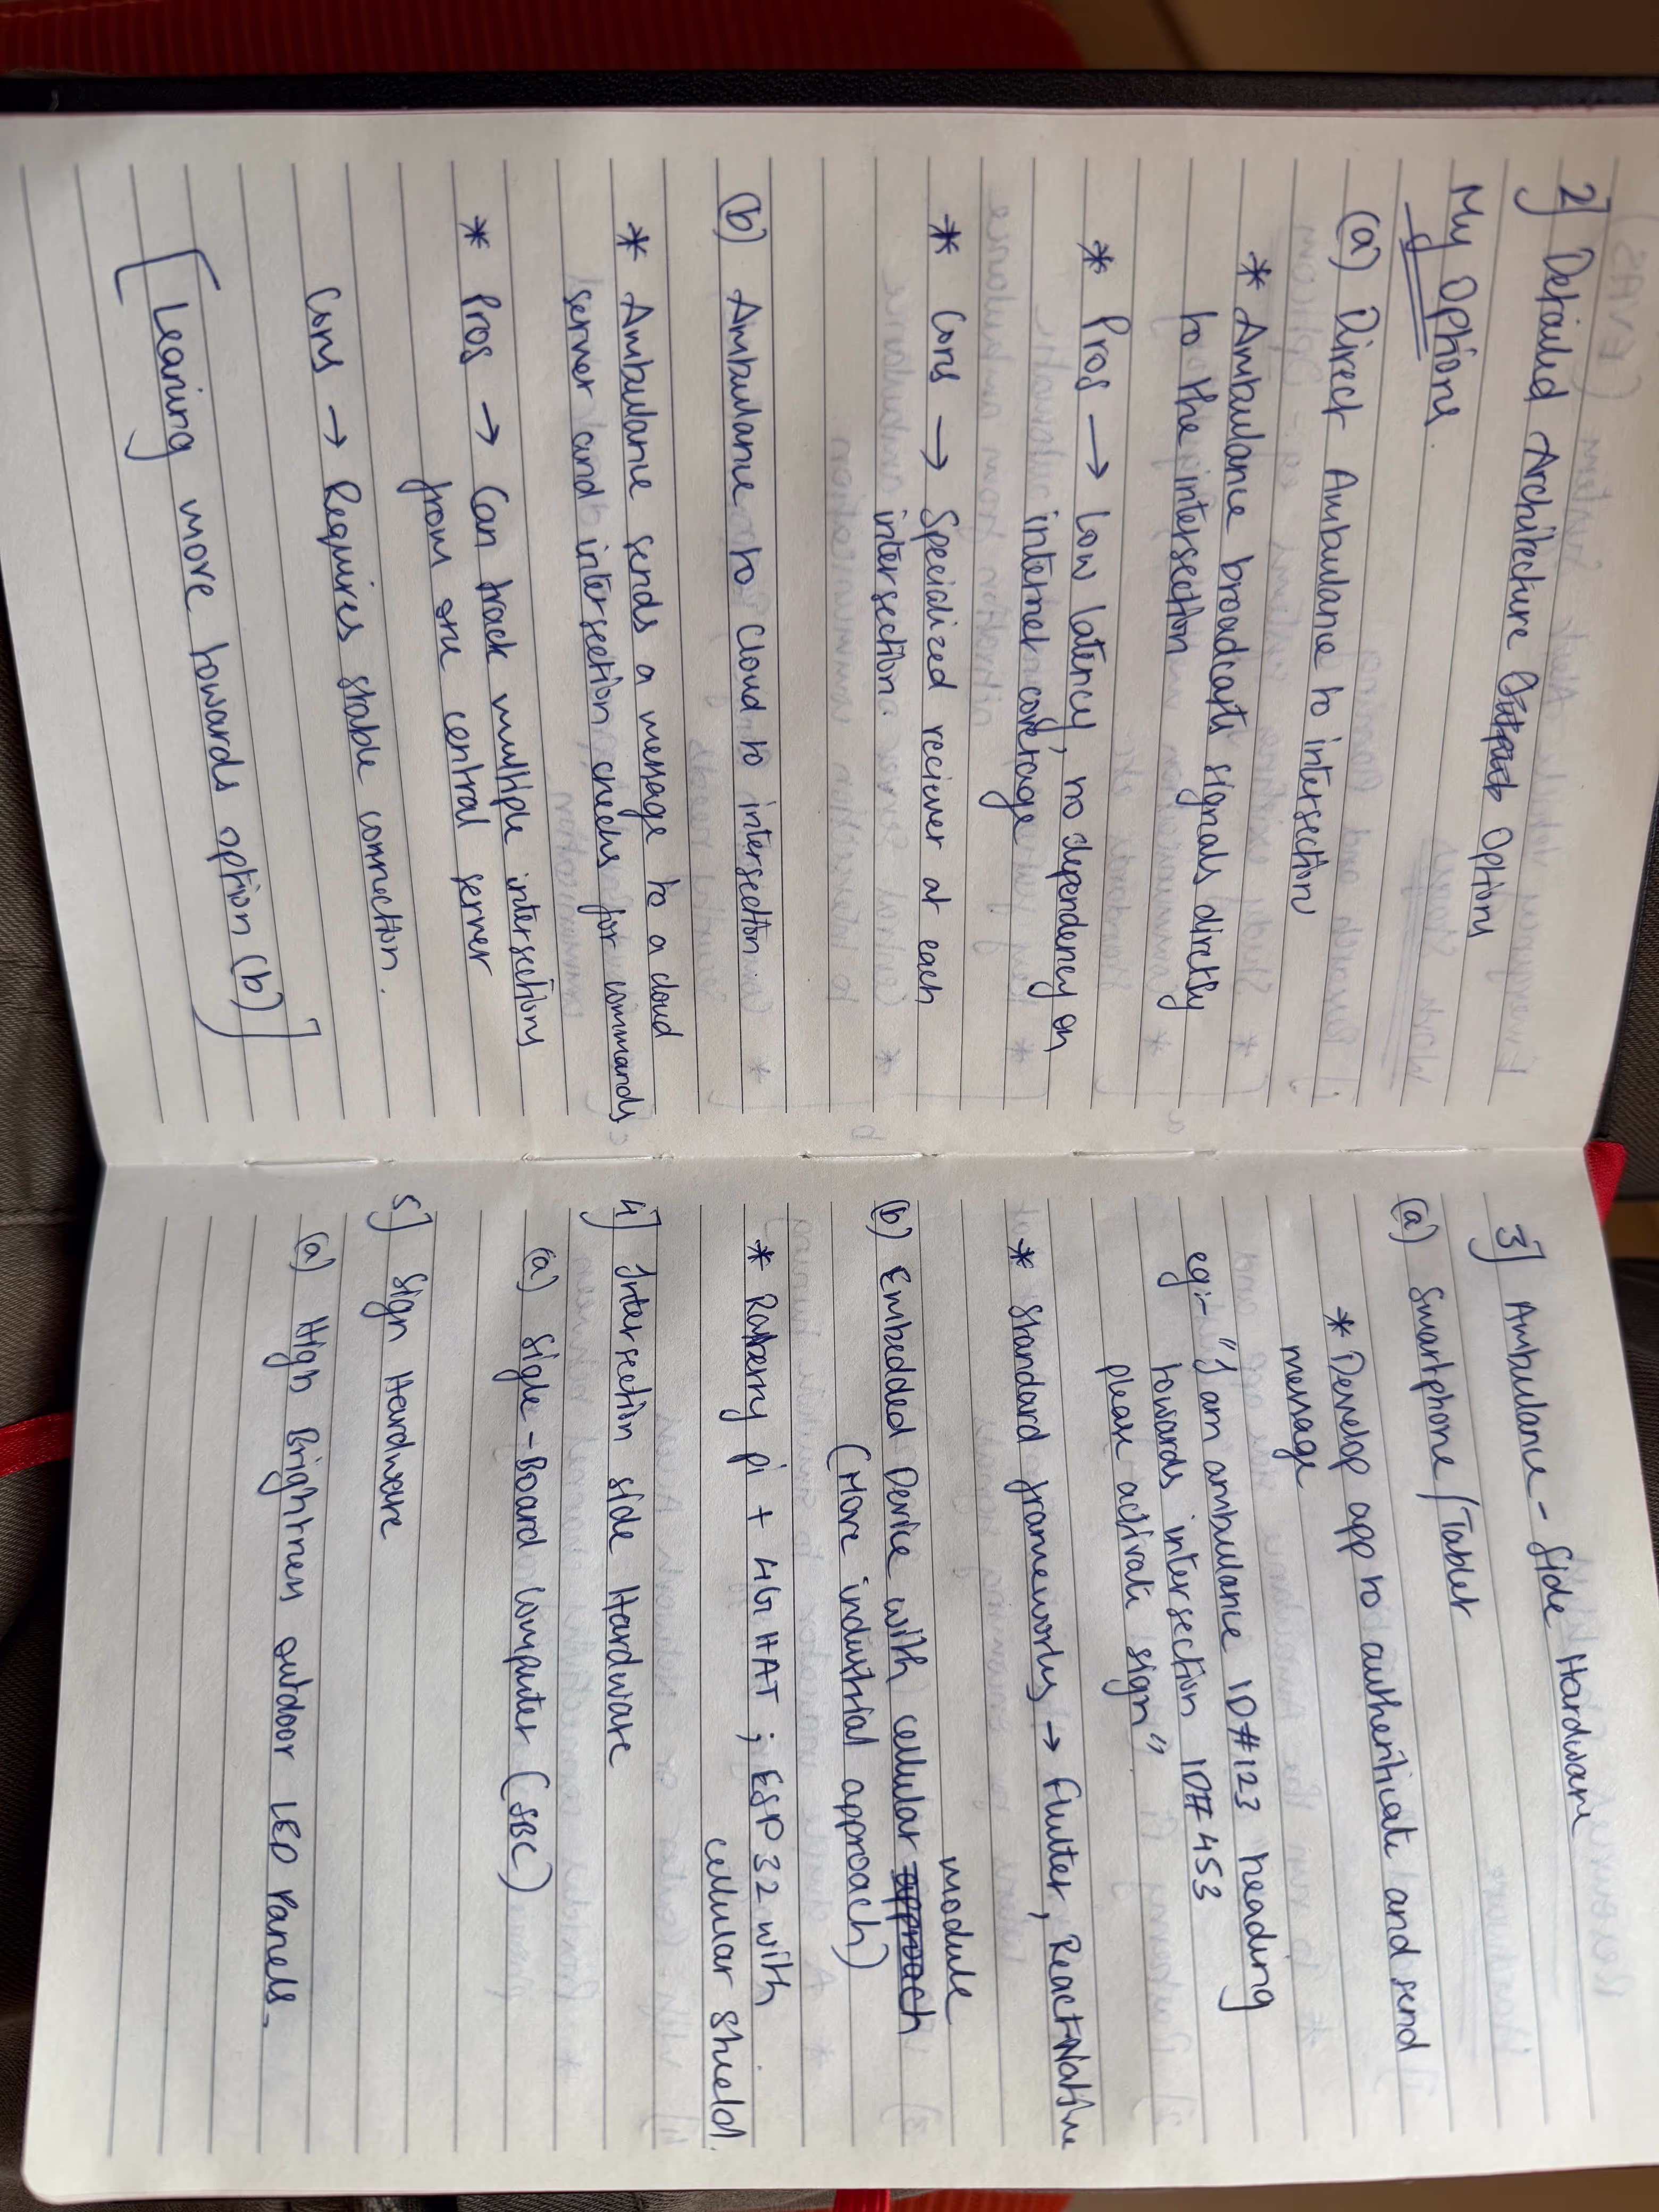 2] Detailed Architecture Options
My Options.
(a) Direct Ambulance to intersection
* Ambulance broadcasts signals directly
to the intersection
* Pros → Low latency, no dependency on
internet coverage
* Cons → Specialized reciever at each
intersection
(b) Ambulance to Cloud to intersection.
* Ambulance sends a message to a cloud
server and intersection checks for commands
* Pros → Can track multiple intersections
from one central server
Cons → Requires stable connection.
[Leaning more towards option (b)]
3] Ambulance-Side Hardware
(a) Smartphone/Tablet
* Develop app to authenticate and send
message
eg:- "I am ambulance ID#123 heading
towards intersection ID#453
please activate sign"
* Standard frameworks → Flutter, React Native
module
(b) Embedded Device with cellular approach
(More industrial approach)
* Rasberry pi + 4G HAT ; ESP32 with
cellular shield.
4] Intersection side Hardware
(a) Sigle-Board Computer (SBC)
5] Sign Hardware
(a) High Brightness outdoor LED Panels.